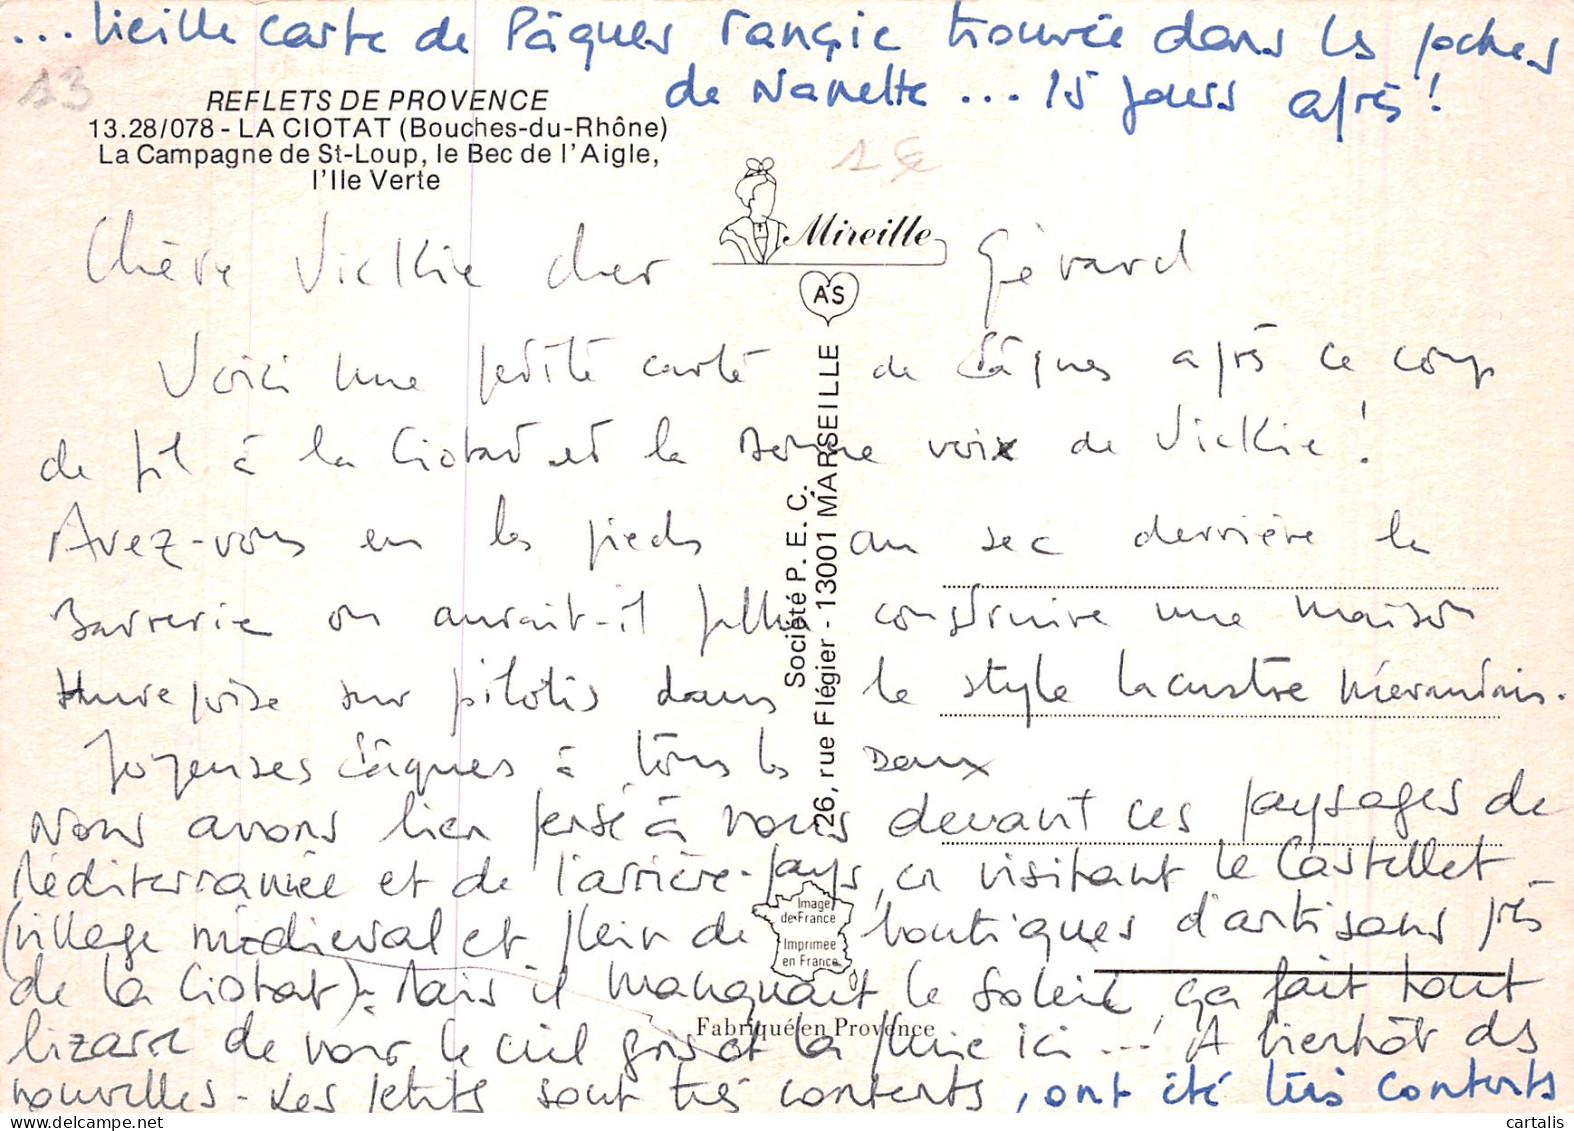 ... vieille carte de Pâques rançie trouvée dans les poches
de Nanette ... 15 jours après !
13
REFLETS DE PROVENCE
13.28/078 - LA CIOTAT (Bouches-du-Rhône)
La Campagne de St-Loup, le Bec de l'Aigle,
l'Ile Verte
1€
Mireille
AS
Chère Vickie cher Gérard
Voici une petite carte de Pâques après ce coup
de fil à la Ciotat et la bonne voix de Vickie !
Avez-vous eu les pieds au sec derrière la
Barrerie ou aurait-il fallu construire une maison
sur pilotis dans le style lacustre
Joyeuses Pâques à tous les deux
Nous avons bien pensé à vous devant ces paysages de
Méditerranée et de l'arrière-pays, en visitant le Castellet -
(village médiéval et plein de boutiques d'artisans près
de la Ciotat). Mais il manquait le soleil, ça fait tout
bizarre de voir le ciel gris et la pluie ici ... ! A bientôt des
nouvelles - Les petits sont très contents, ont été très contents
Société P. E. C.
26, rue Flégier - 13001 MARSEILLE
Image
de France
Imprimée
en France
Fabriqué en Provence
cartalis